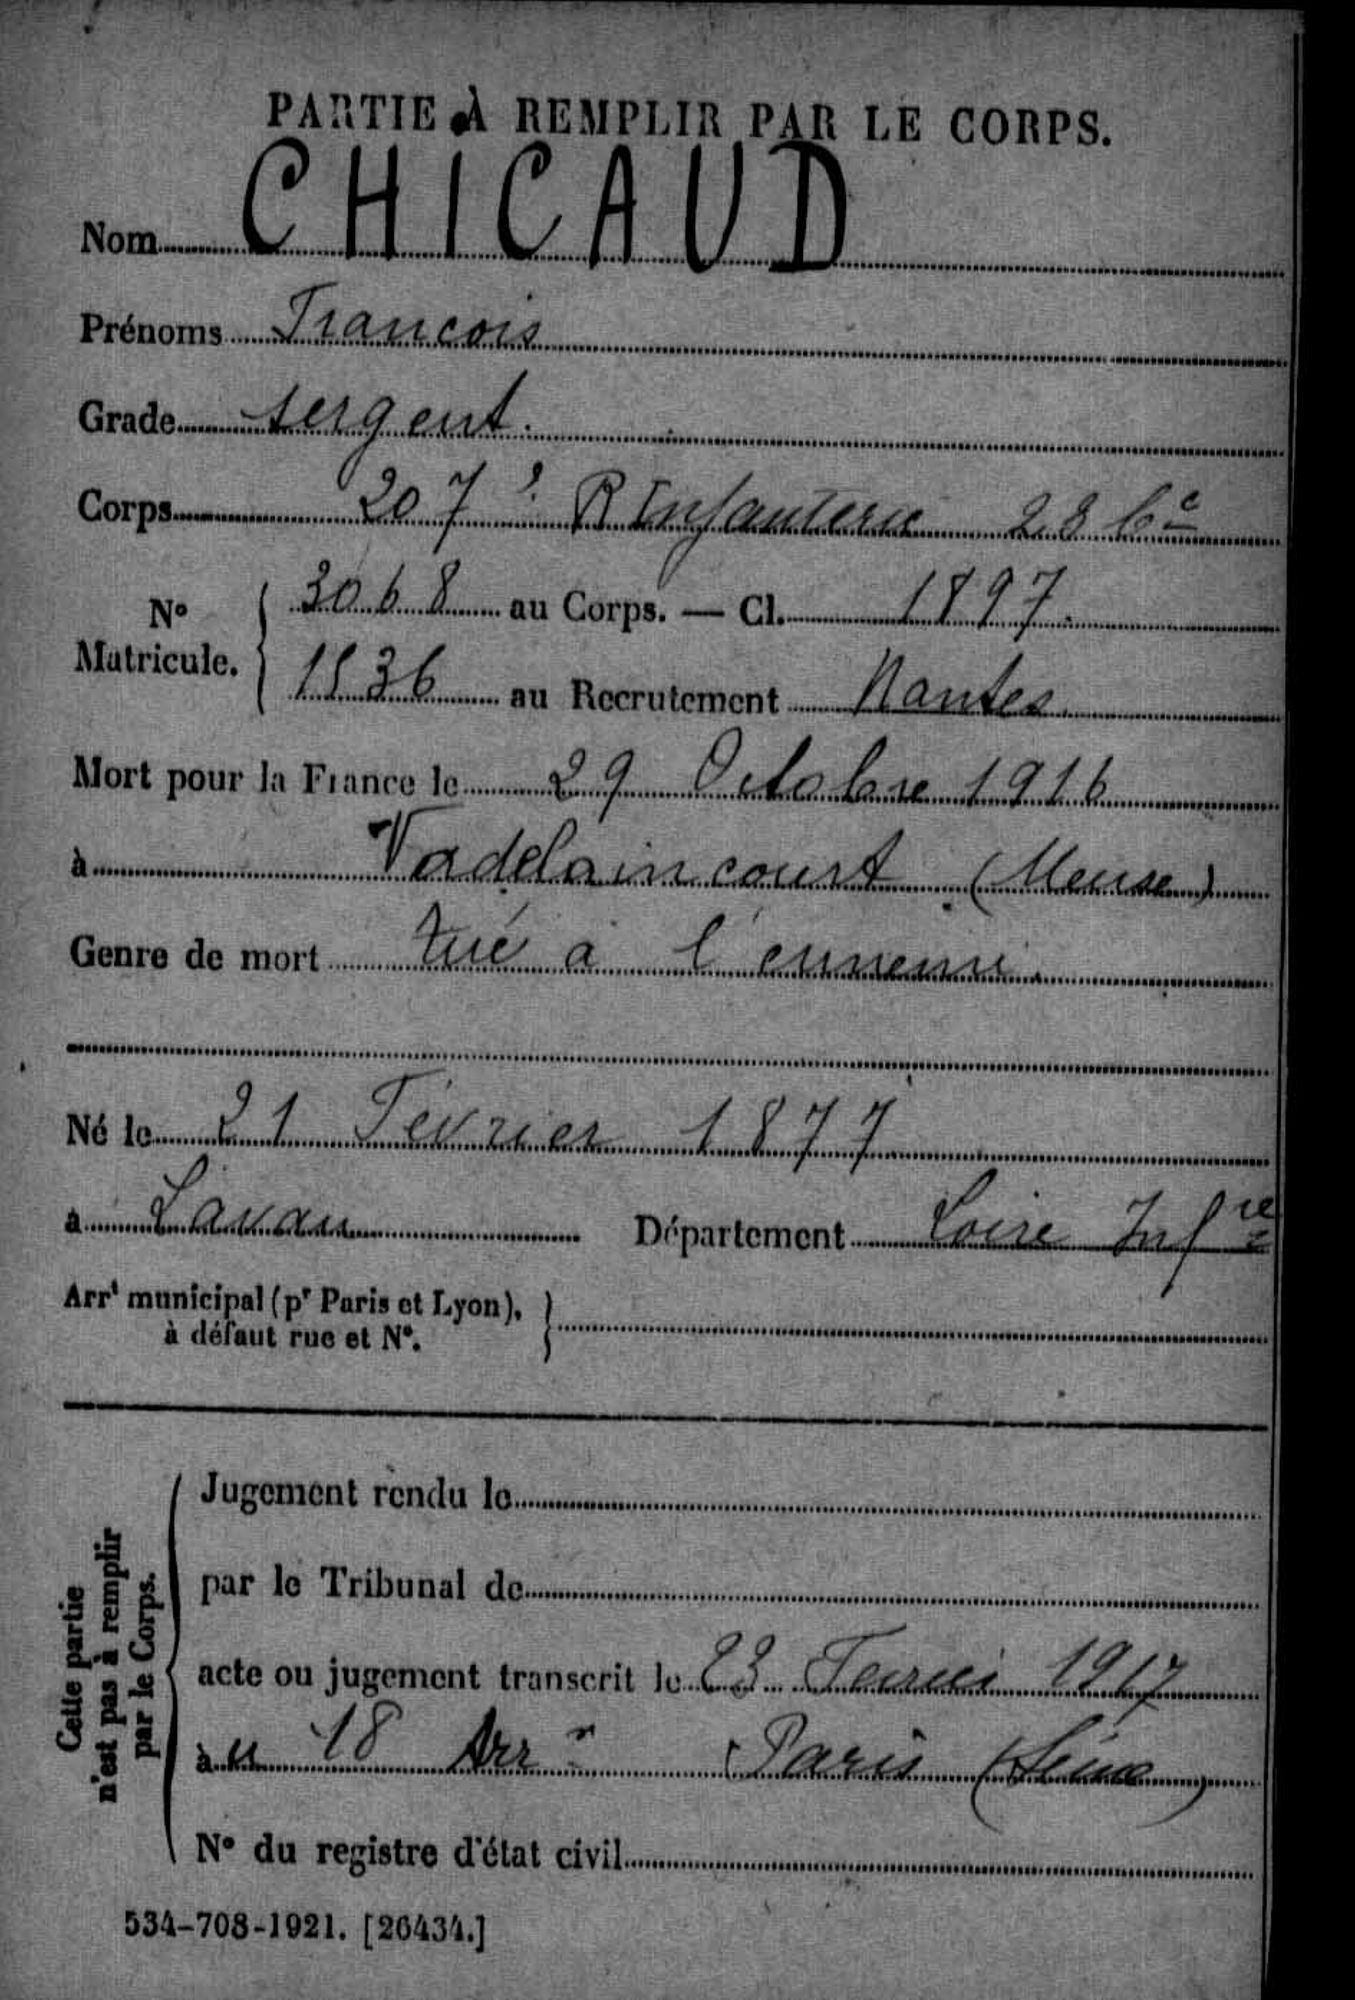 PARTIE À REMPLIR PAR LE CORPS.
Nom CHICAUD
Prénoms Francois
Grade sergent.
Corps 207e R Infanterie 28 Cie
N° Matricule. 3068 au Corps. — Cl. 1897.
1536 au Recrutement Nantes
Mort pour la France le 29 Octobre 1916
à Vadelaincourt (Meuse)
Genre de mort tué a l'ennemi.
Né le 21 Février 1877
à Lavau Département Loire Infre
Arrt municipal (pr Paris et Lyon),
à défaut rue et N°.
Cette partie
n'est pas à remplir
par le Corps.
Jugement rendu le
par le Tribunal de
acte ou jugement transcrit le 23 Fevrier 1917
au 18 Arrt Paris (Seine)
N° du registre d'état civil
534-708-1921. [26434.]